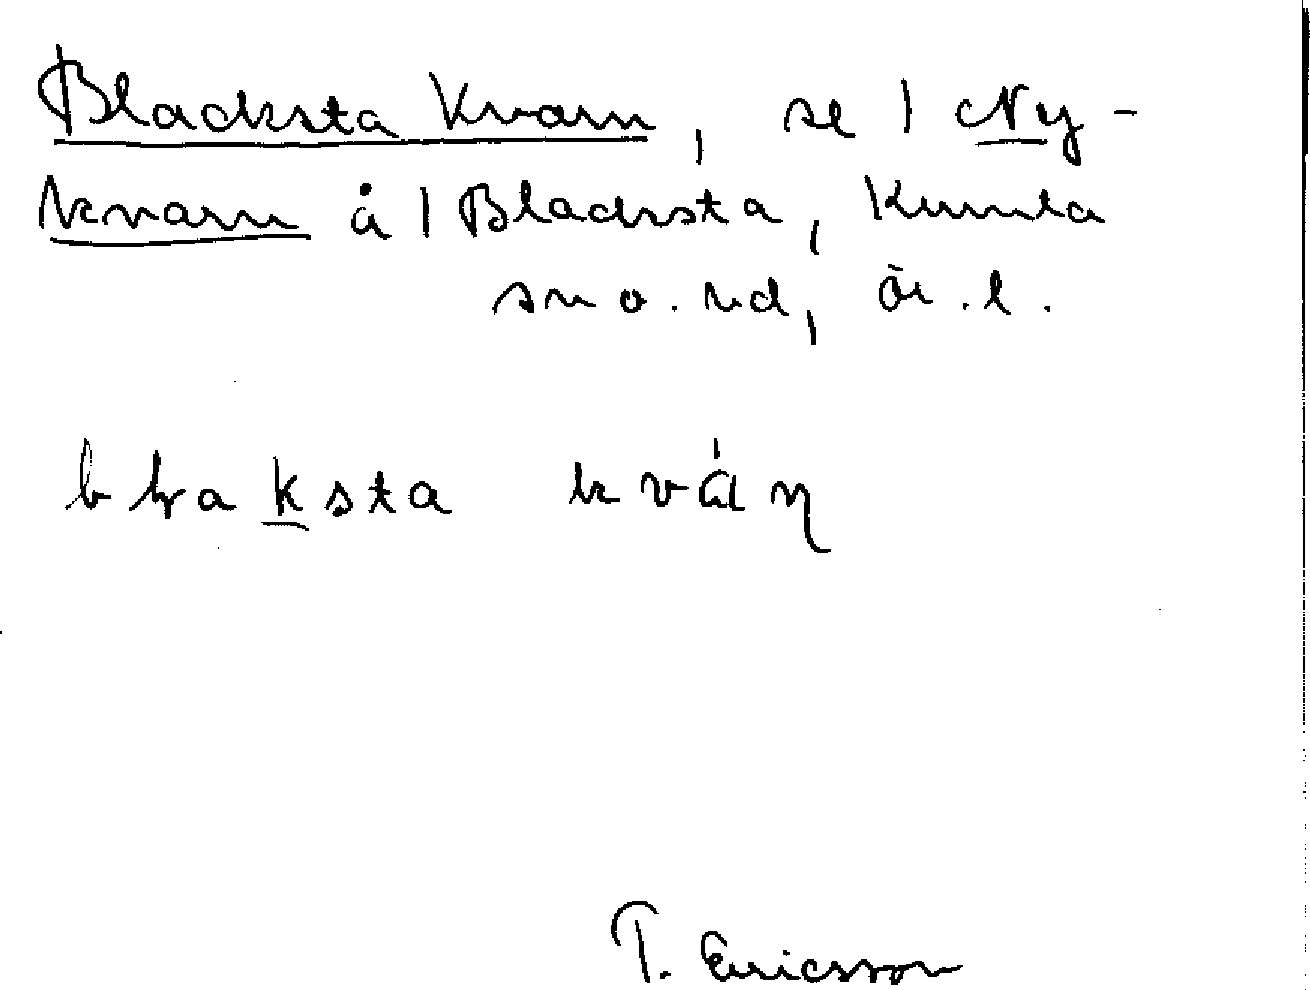 Blacksta Kvarn, se 1 Ny-
kvarn å 1 Blacksta, Kumla
sn o. hd, Ör. l.
blaksta kván
T. Ericsson